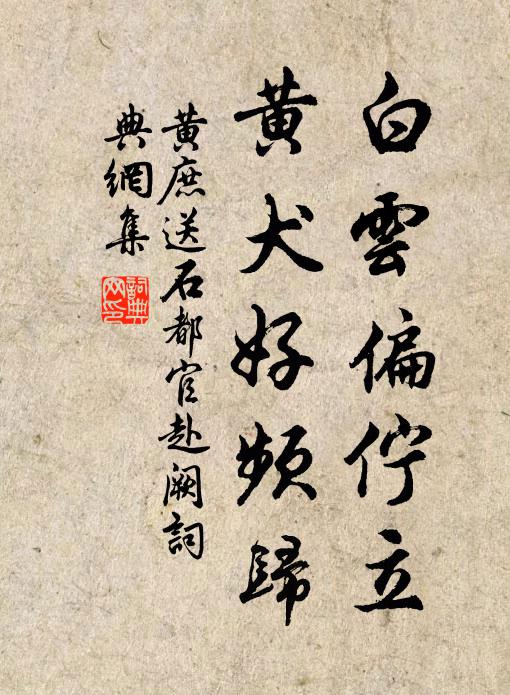 白雲偏佇立
黃犬好頻歸
黃庶送石都官赴闕詞
典網集
詞典
网印